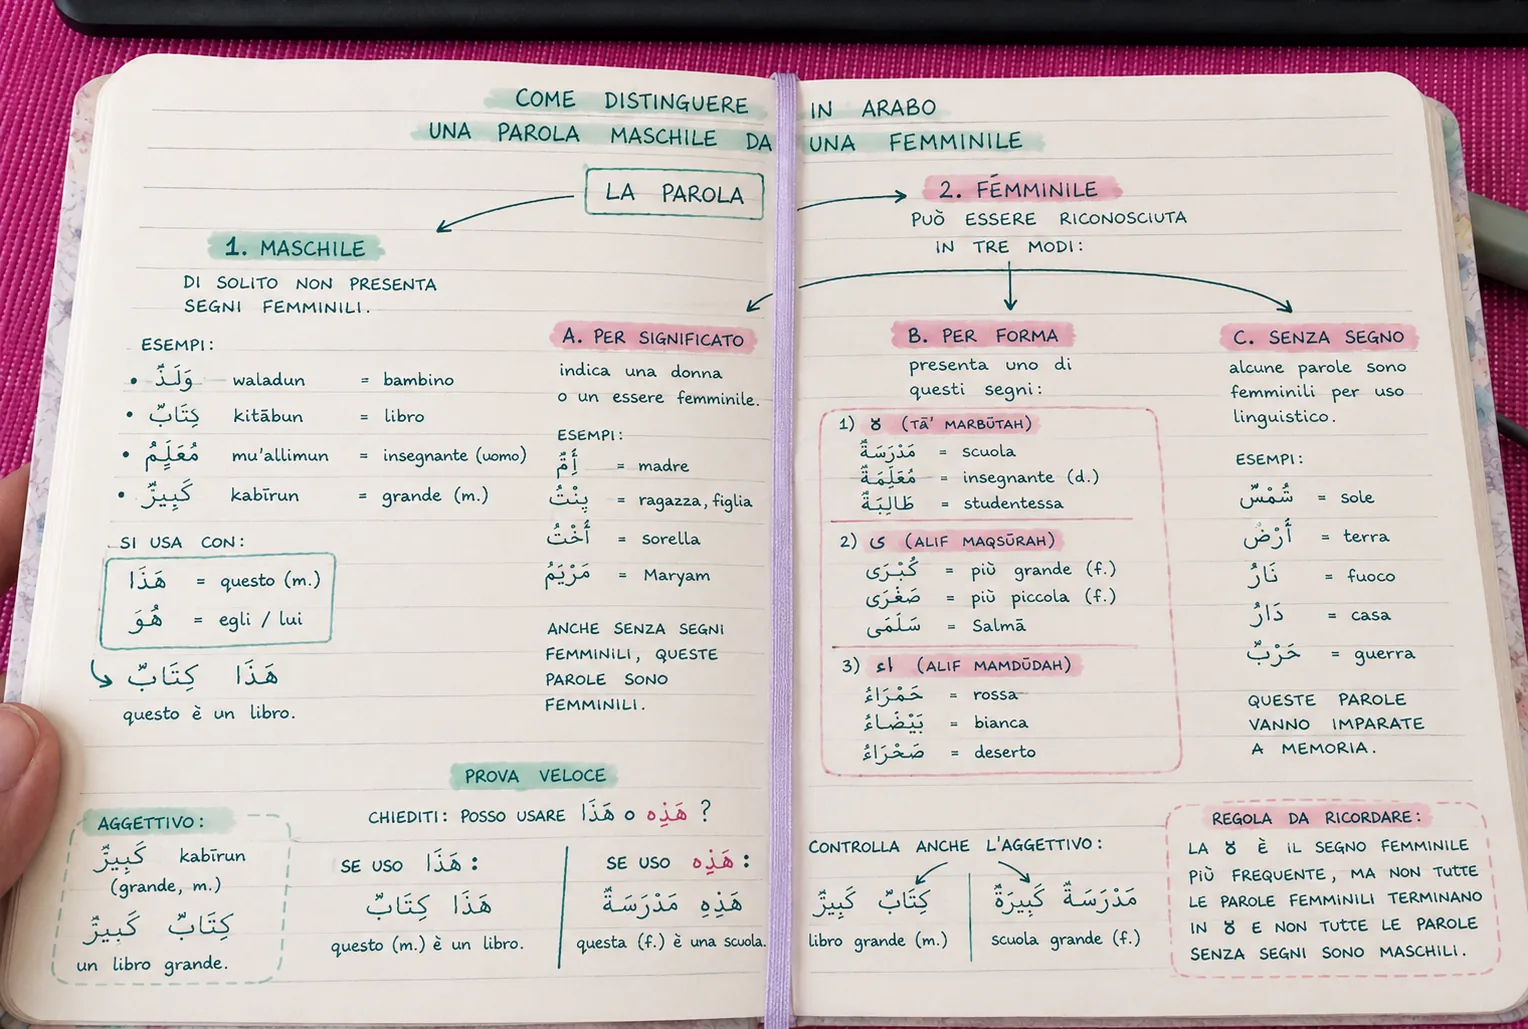 COME DISTINGUERE IN ARABO
UNA PAROLA MASCHILE DA UNA FEMMINILE
LA PAROLA
1. MASCHILE
DI SOLITO NON PRESENTA
SEGNI FEMMINILI.
ESEMPI:
• waladun = bambino
• كِتَابٌ kitābun = libro
• مُعَلِّمٌ mu'allimun = insegnante (uomo)
• kabīrun = grande (m.)
SI USA CON:
هَذَا = questo (m.)
هُوَ = egli / lui
هَذَا كِتَابٌ
questo è un libro.
2. FÉMMINILE
PUÒ ESSERE RICONOSCIUTA
IN TRE MODI:
A. PER SIGNIFICATO
indica una donna
o un essere femminile.
ESEMPI:
أُمٌّ = madre
بِنْتٌ = ragazza, figlia
أُخْتٌ = sorella
مَرْيَمُ = Maryam
ANCHE SENZA SEGNI
FEMMINILI, QUESTE
PAROLE SONO
FEMMINILI.
B. PER FORMA
presenta uno di
questi segni:
1) ة (TĀ' MARBŪTAH)
مَدْرَسَةٌ = scuola
مُعَلِّمَةٌ = insegnante (d.)
طَالِبَةٌ = studentessa
2) ى (ALIF MAQSŪRAH)
كُبْرَى = più grande (f.)
صَغْرَى = più piccola (f.)
سَلْمَى = Salmā
3) اء (ALIF MAMDŪDAH)
حَمْرَاءُ = rossa
بَيْضَاءُ = bianca
صَحْرَاءُ = deserto
C. SENZA SEGNO
alcune parole sono
femminili per uso
linguistico.
ESEMPI:
شَمْسٌ = sole
أَرْضٌ = terra
نَارٌ = fuoco
دَارٌ = casa
حَرْبٌ = guerra
QUESTE PAROLE
VANNO IMPARATE
A MEMORIA.
PROVA VELOCE
CHIEDITI: POSSO USARE هَذَا o هَذِه ?
AGGETTIVO:
kabīrun
(grande, m.)
كِتَابٌ
un libro grande.
SE USO هَذَا :
هَذَا كِتَابٌ
questo (m.) è un libro.
SE USO هَذِه :
هَذِهِ مَدْرَسَةٌ
questa (f.) è una scuola.
CONTROLLA ANCHE L'AGGETTIVO:
كِتَابٌ
libro grande (m.)
مَدْرَسَةٌ كَبِيرَةٌ
scuola grande (f.)
REGOLA DA RICORDARE:
LA ة È IL SEGNO FEMMINILE
PIÙ FREQUENTE, MA NON TUTTE
LE PAROLE FEMMINILI TERMINANO
IN ة E NON TUTTE LE PAROLE
SENZA SEGNI SONO MASCHILI.